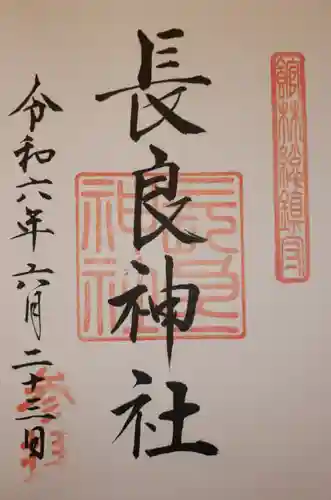 館林総鎮守
長良神社
長良
神社
令和六年六月二十三日
参拝